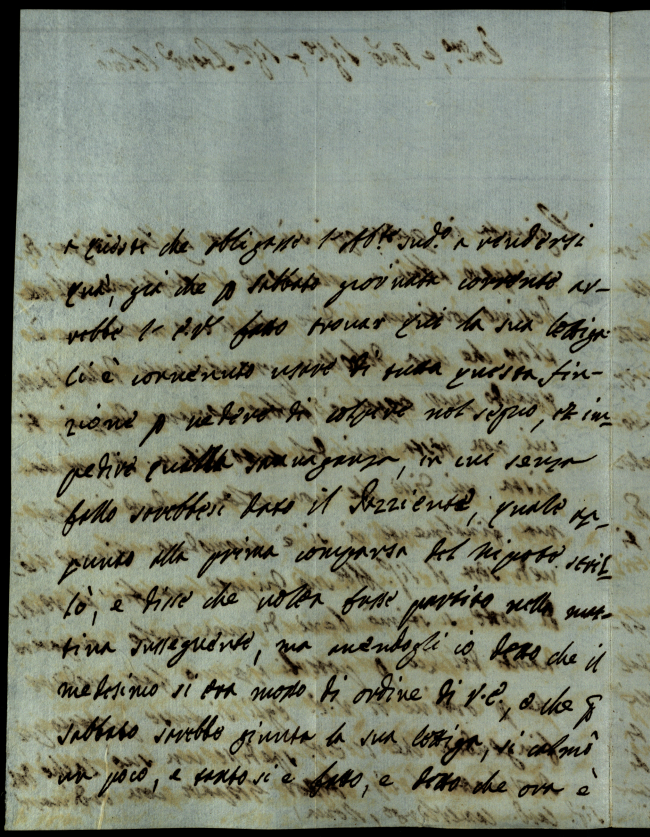 e quasi che obligasse l'Ab.e sud.o a rendersi
quà, già che p sabbato giornata corrente av-
rebbe l' E.V. fatto trovar quì la sua lettiga
Ci è convenuto usare di tutta questa fin-
zione p vedere di colpire nel segno, et im-
pedire quella stravaganza, in cui senza
fallo sarebbesi dato il Pazziente, quale ap-
punto alla prima comparsa del Nipote stril-
lò, e disse che volea fusse partito nella mat-
tina susseguente, ma avendogli io detto che il
medesimo si era mosso di ordine di V.E., e che p
sabbato sarebbe giunta la sua lettiga, si calmò
un poco, e tanto si è fatto, e detto che ora è